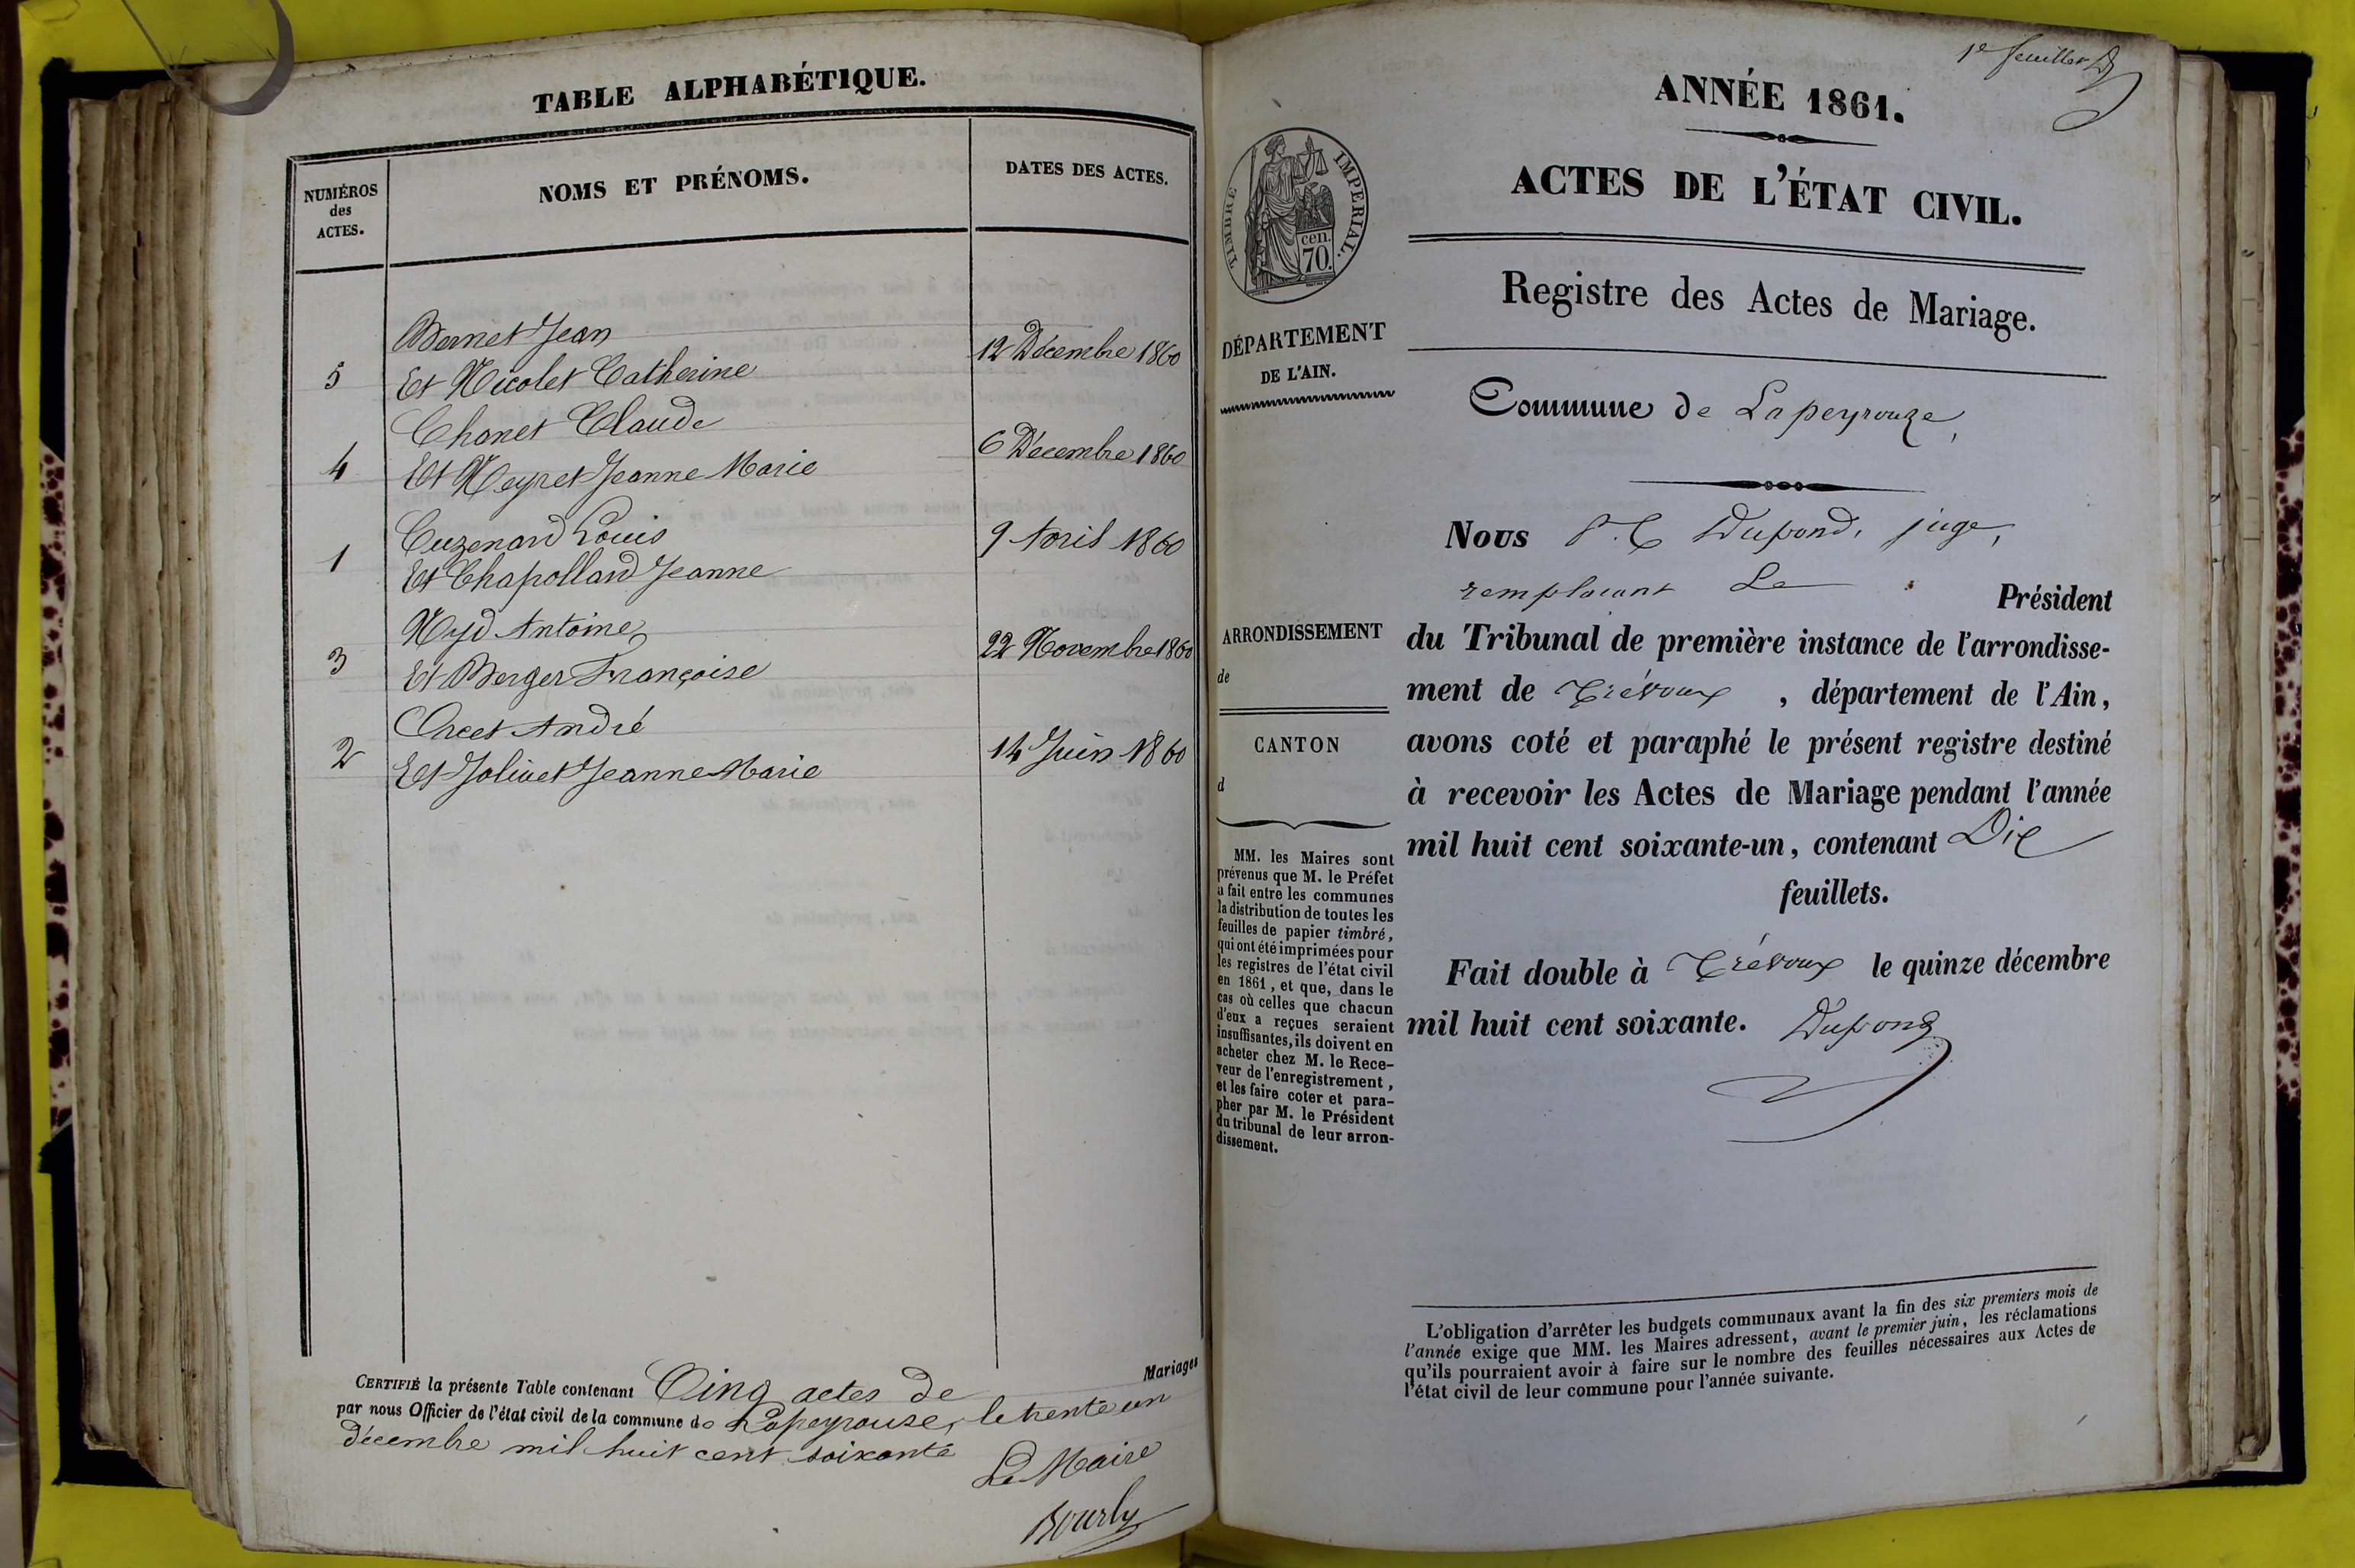 TABLE ALPHABÉTIQUE.
NUMÉROS
des
ACTES.
NOMS ET PRÉNOMS.
DATES DES ACTES.
Bernet Jean
5 Et Nicolet Catherine 12 Décembre 1860
Chanet Claude
4 Et Neyret Jeanne Marie 6 Décembre 1860
Cuzenard Louis
1 Et Chapolland Jeanne 9 Avril 1860
Antoine
3 Et Berger Françoise 22 Novembre 1860
André
2 Et Jolivet Jeanne Marie 14 Juin 1860
CERTIFIÉ la présente Table contenant Cinq actes de Mariages
par nous Officier de l'état civil de la commune de Lapeyrouse, le trente un
décembre mil huit cent soixante
Le Maire
Bourly
1e feuillet
ANNÉE 1861.
ACTES DE L'ÉTAT CIVIL.
Registre des Actes de Mariage.
TIMBRE IMPÉRIAL.
cen.
70.
DÉPARTEMENT
DE L'AIN.
ARRONDISSEMENT
de
CANTON
d
MM. les Maires sont
prévenus que M. le Préfet
a fait entre les communes
la distribution de toutes les
feuilles de papier timbré,
qui ont été imprimées pour
les registres de l'état civil
en 1861, et que, dans le
cas où celles que chacun
d'eux a reçues seraient
insuffisantes, ils doivent en
acheter chez M. le Rece-
veur de l'enregistrement,
et les faire coter et para-
pher par M. le Président
du tribunal de leur arron-
dissement.
Commune de Lapeyrouze,
Nous Dupond, juge,
remplacant Le Président
du Tribunal de première instance de l'arrondisse-
ment de Trévoux, département de l'Ain,
avons coté et paraphé le présent registre destiné
à recevoir les Actes de Mariage pendant l'année
mil huit cent soixante-un, contenant Dix
feuillets.
Fait double à Trévoux le quinze décembre
mil huit cent soixante. Dupond
L'obligation d'arrêter les budgets communaux avant la fin des six premiers mois de
l'année exige que MM. les Maires adressent, avant le premier juin, les réclamations
qu'ils pourraient avoir à faire sur le nombre des feuilles nécessaires aux Actes de
l'état civil de leur commune pour l'année suivante.